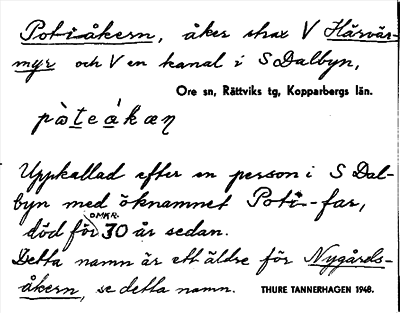 Poti-åkern, åker strax V Hårvär-
myr och V en kanal i S Dalbyn,
Ore sn, Rättviks tg, Kopparbergs län.
pàteákæn
Uppkallad efter en person i S Dal-
byn med öknamnet Poti-far,
omkr.
död för 30 år sedan.
Detta namn är ett äldre för Nygårds-
åkern, se detta namn. THURE TANNERHAGEN 1948.